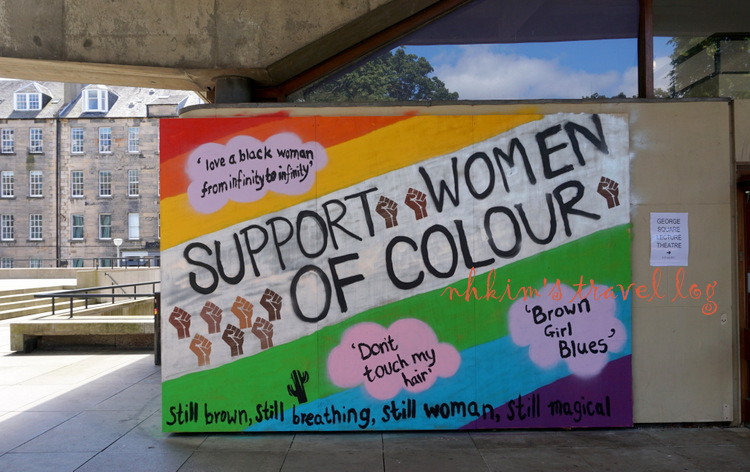 'love a black woman
from infinity to infinity'
SUPPORT WOMEN
OF COLOUR
GEORGE
SQUARE
LECTURE
THEATRE
nhkim's travel log
'Brown
Girl
Blues'
'Don't
touch my
hair'
Still brown, still breathing, still woman, still magical